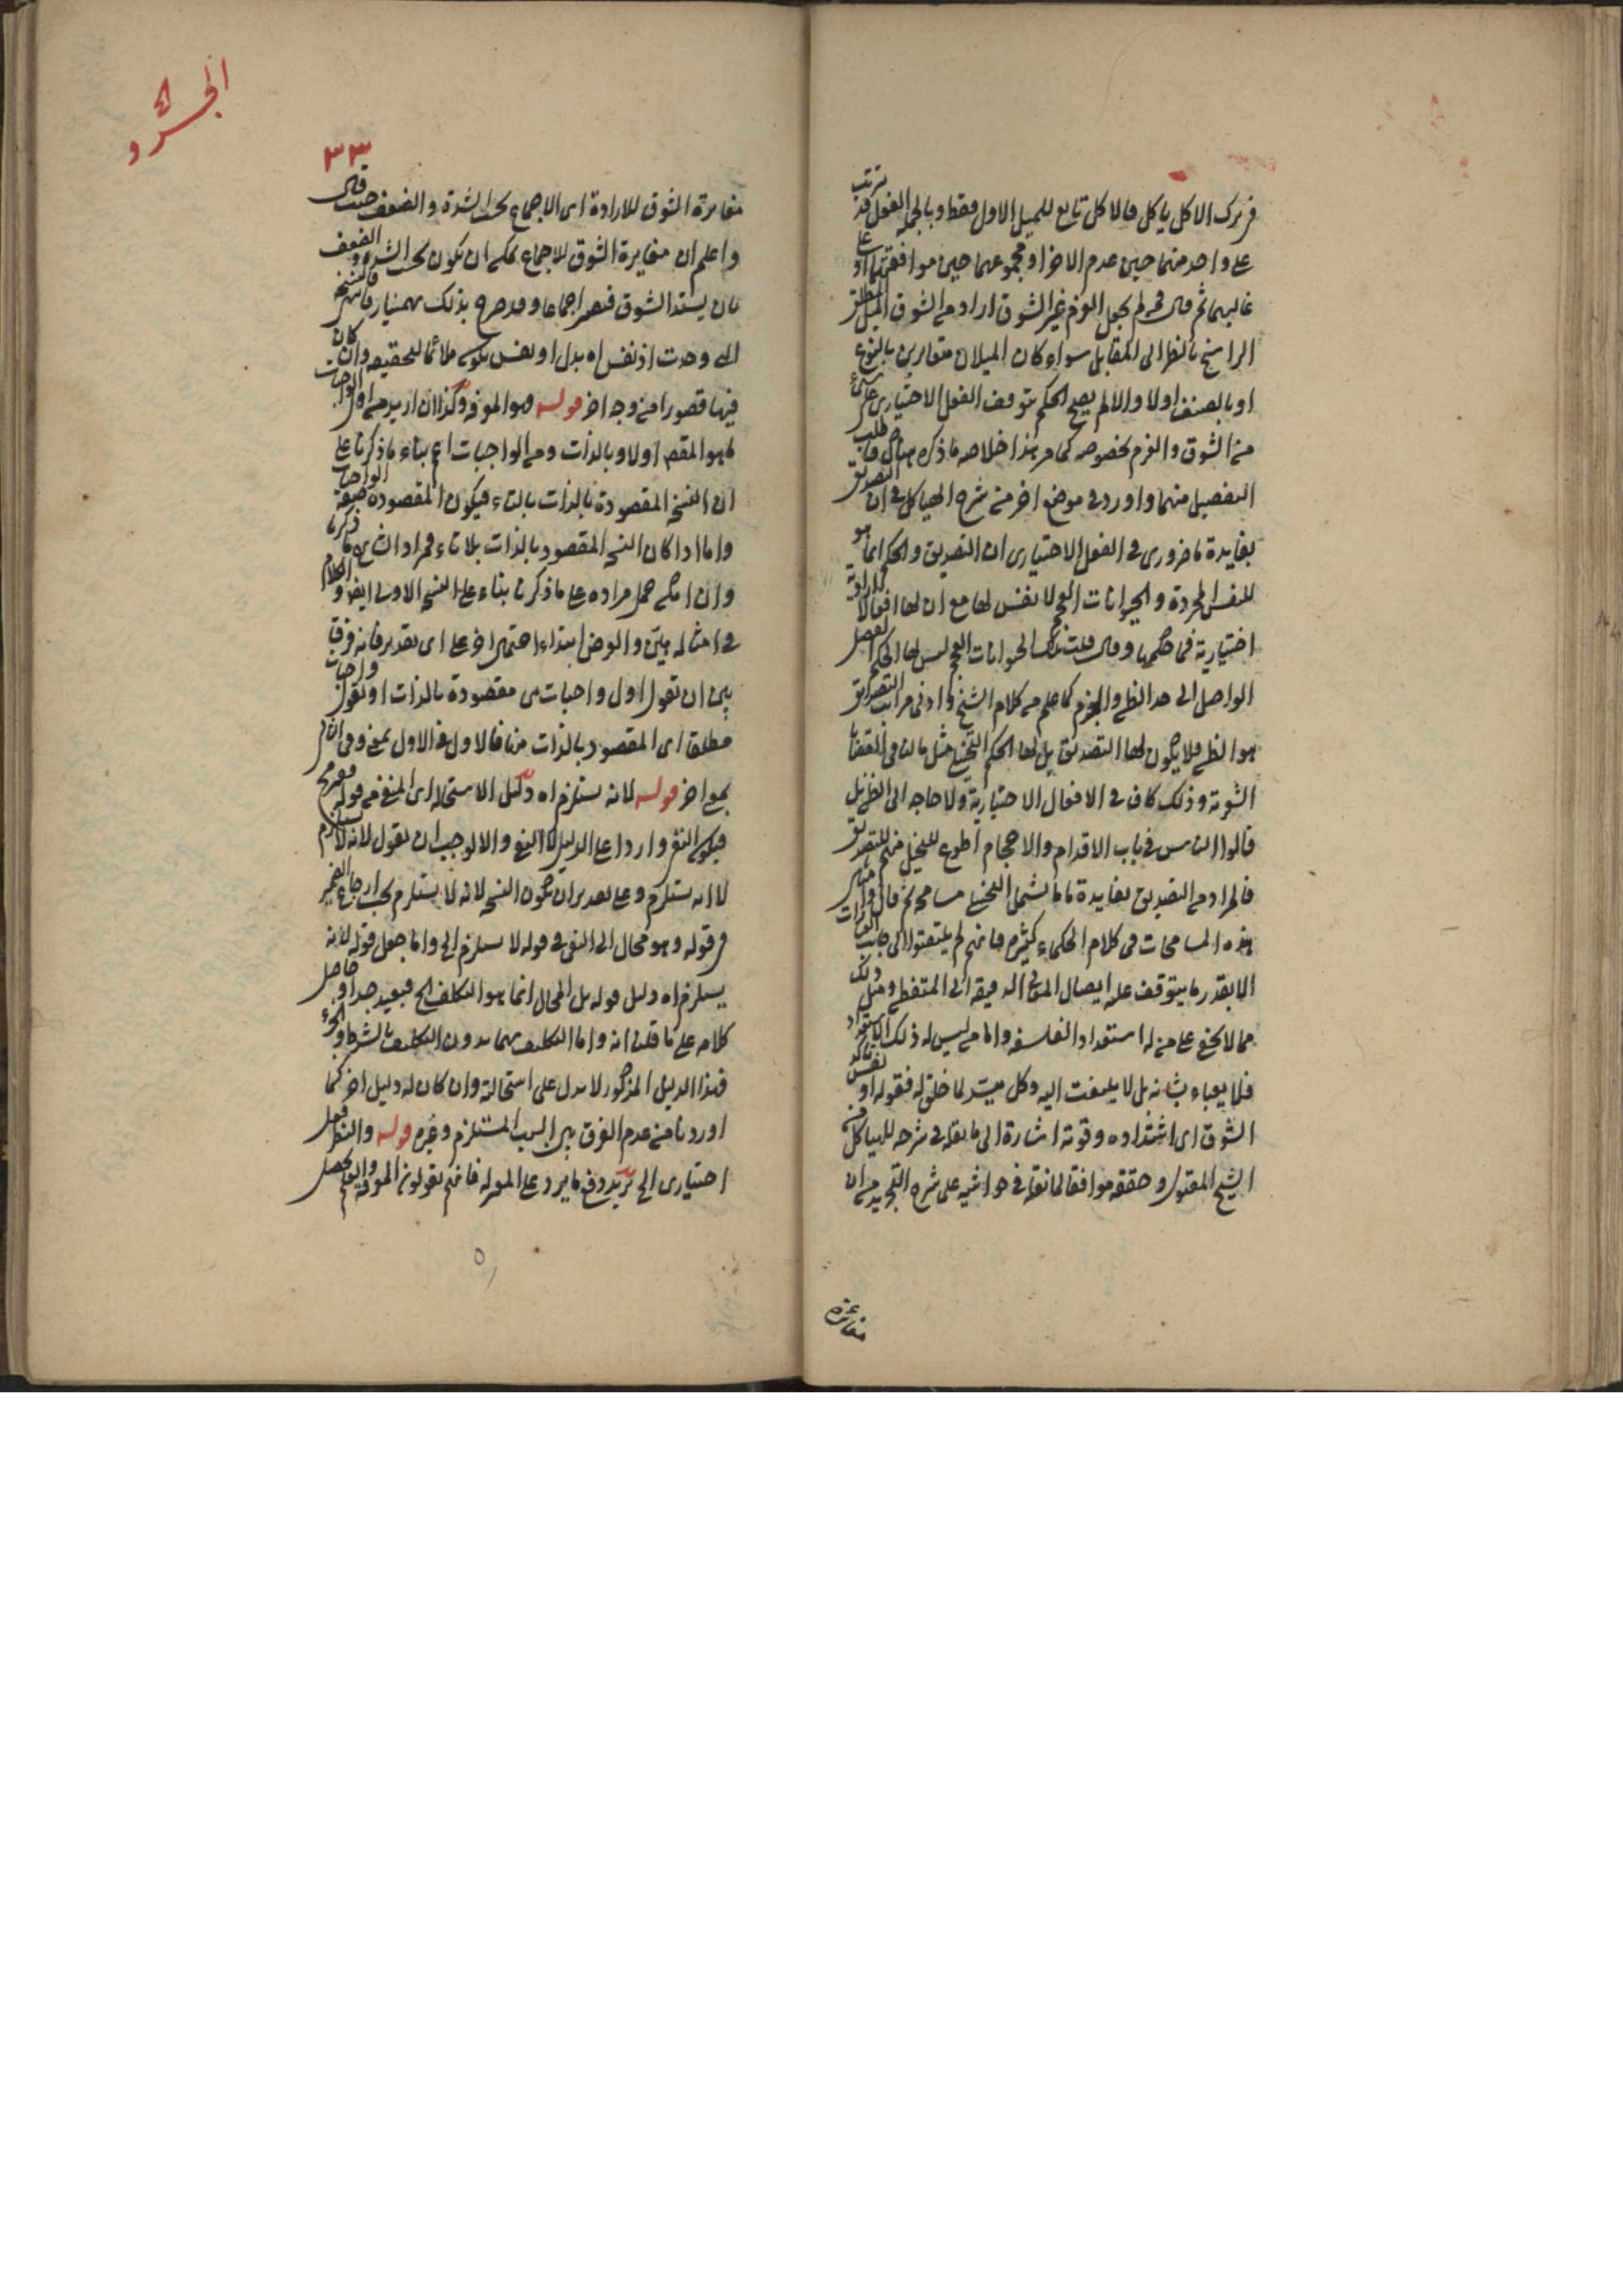 فترك الاكل ياكل فالاكل تابع للميل الاول فقط وبالجملة الفعل قد يترتب
على واحد منهما حين عدم الاخر او مجموعهما حين موافقتهما او على
غالبهما ثم قال فمن لم يجعل العزم غير الشوق اراد من الشوق الميل المطلق
الراسخ بالنظر الى المقابل سواء كان الميلان متغايرين بالنوع
او بالصنف اولا والا لم يصح الحكم بتوقف الفعل الاختياري على شيء
من الشوق والعزم بخصوصه كما مر هذا خلاصة ما ذكره هناك فاطلب
التفصيل منهما واورد في موضع اخر من شرح الهياكل في ان التصديق
بفايدة ما ضروري في الفعل الاختياري ان التصديق والحكم انما هو
للنفس المجردة والحيوانات العجم لا نفس لها مع ان لها افعالا ارادية
اختيارية فما حكمها وقال قلت تلك الحيوانات العجم ليس لها الحكم العقلي
الواصل الى حد الظن والجزم كما علم من كلام الشيخ وادنى مراتب التصديق
هو الظن فلا يكون لها التصديق بل لها الحكم التخيلي مثل ما لنا في القضايا
الشعرية وذلك كاف في الافعال الاختيارية ولا حاجة الى الظن بل
قالوا الناس في باب الاقدام والاحجام اطوع للتخيل منهم للتصديق
فالمراد من التصديق بفايدة ما ما يشمل التخيلي مسامحة ثم قال وامثال
هذه المسامحات في كلام الحكماء كثيرة فانهم لم يلتفتوا الى جانب العبارات
الا بقدر ما يتوقف عليه ايصال المعاني الدقيقة الى المتفطن ومثل ذلك
مما لا يخفى على من له استعداد الفلسفة واما من ليس له ذلك الاستعداد
فلا يعباء بشانه بل لا يلتفت اليه وكل ميسر لما خلق له فقوله او نفس تأكد
الشوق اى اشتداده وقوته اشارة الى ما نقله في شرحه للهياكل من
الشيخ المقتول وحققه موافقا لما نقله في حواشيه على شرح التجريد من ان
مغايرة
الجرد
٣٣
مغايرة الشوق للارادة اى الاجماع بحسب الشدة والضعف حيث قال
واعلم ان مغايرة الشوق للاجماع يمكن ان تكون بحسب الشدة والضعف
بان يشتد الشوق فتصير اجماعا وقد صرح بذلك بهمنيار فالنسخة
التي وجدت اذ نفس اه بدل او نفس يكون ملائما لتحقيقه وان كان
فيها قصور من وجه اخر قوله وهو المعرفة وكذا ان اريد من اول الواجبات
ما هو المقصد اولا وبالذات ومن الواجبات اعم بناء ما ذكرنا على
ان النسخ المقصودة بالذات بالتاء فيكون المقصودة صفة الواجبات
واما اذا كان النسخة المقصود بالذات بلا تاء فمراد الشارح ما ذكرنا
وان امكن حمل مراده على ما ذكرنا بناء على النسخة الاولى ايضا والكلام
في امثاله هين والعرض ابتداء احتمال اخر على اى تقدير فانه فرق
بين ان تقول اول واجبات هي مقصودة بالذات او تقول واجبات
مطلقا اى المقصود بالذات منها فالاول في الاول بمعنى وفي الثاني
بمعنى اخر قوله لانه يستلزم اه دليل الاستحالة اى المنفي من قوله
فيكون النفي واردا على الدليل لا النفي والا لوجب ان يقول لانه لا يستلزم
لا انه يستلزم وعلى تقدير ان يكون النسخة لانه لا يستلزم يجب ارجاع الضمير
في قوله وهو محال الى النفي في قوله لا يستلزم الخ واما جعل قوله لانه
يستلزم اه دليل قوله بل المحال انما هو التكلف الخ فبعيد جدا وحاصل
كلامه على ما قلنا انه واما التكليف بهما بدون التكليف بالشرط او الجزء
فهذا الدليل المذكور لا يدل على استحالته وان كان له دليل اخر كما
اوردنا من عدم الفرق بين السبب المستلزم وغيره قوله والنظر فعل
اختياري الخ يريد دفع ما يرد على المعتزلة فانهم يقولون المعرفة